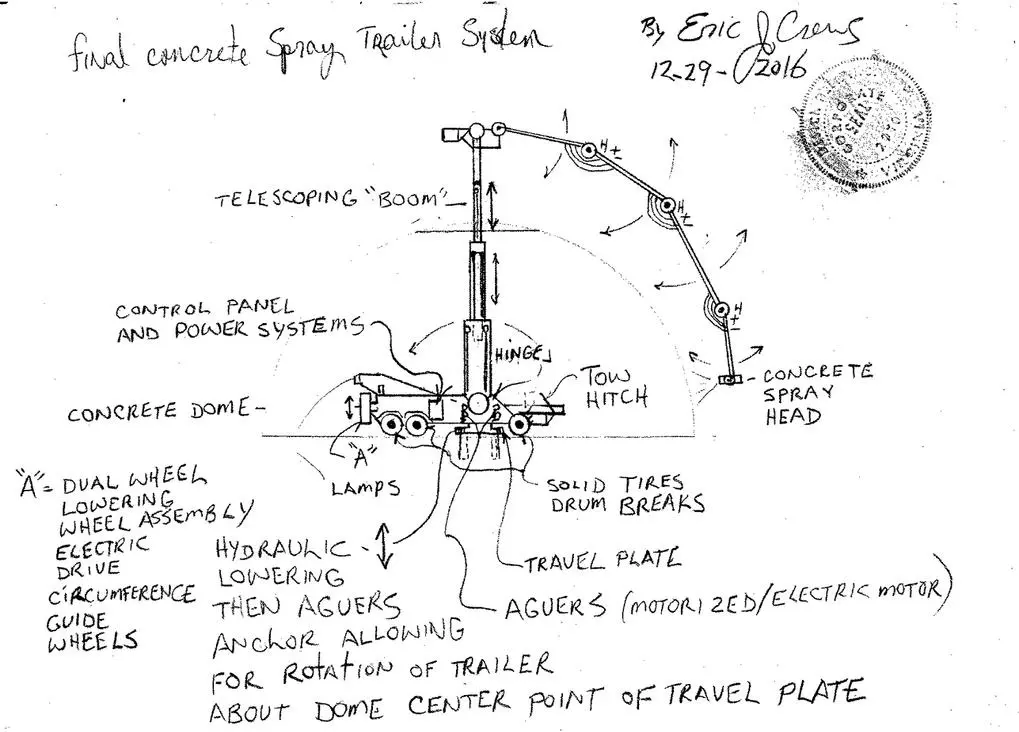 final concrete Spray Trailer System
By Eric J Crews
12-29-2016
CORPORATE
SEAL
VIRGINIA
TELESCOPING "BOOM"
H±
H±
H±
CONTROL PANEL
AND POWER SYSTEMS
HINGE
TOW
HITCH
CONCRETE
SPRAY
HEAD
CONCRETE DOME
"A"
LAMPS
SOLID TIRES
DRUM BREAKS
"A" = DUAL WHEEL
LOWERING
WHEEL ASSEMBLY
ELECTRIC
DRIVE
CIRCUMFERENCE
GUIDE
WHEELS
HYDRAULIC
LOWERING
THEN AGUERS
ANCHOR ALLOWING
FOR ROTATION OF TRAILER
ABOUT DOME CENTER POINT OF TRAVEL PLATE
TRAVEL PLATE
AGUERS (MOTORIZED/ELECTRIC MOTOR)